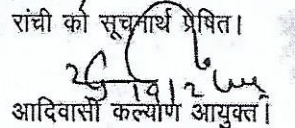 रांची को सूचनार्थ प्रेषित।
आदिवासी कल्याण आयुक्त।